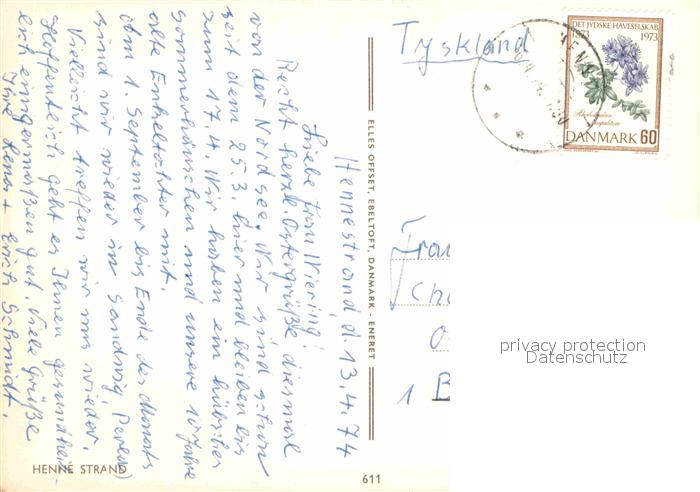 Hennestrand, d. 13.4.74
Liebe Frau Wiering!
Recht herzl. Ostergrüße diesmal
von der Nordsee. Wir sind schon
seit dem 25.3. hier und bleiben bis
zum 17.4. Wir haben ein hübsches
Sommerhäuschen und unsere 10 Jahre
alte Enkeltochter mit.
Am 1. September bis Ende des Monats
sind wir wieder in Sandvig
Vielleicht treffen wir uns wieder.
Hoffentlich geht es Ihnen gesundheit-
lich einigermaßen gut. Viele Grüße
Ihre Lena + Erich Schmidt.
HENNE STRAND
ELLES OFFSET, EBELTOFT, DANMARK - ENERET
611
Tyskland
DET JYDSKE HAVESELSKAB
1873 1973
DANMARK 60
Frau
Cha
O
1 B
privacy protection
Datenschutz